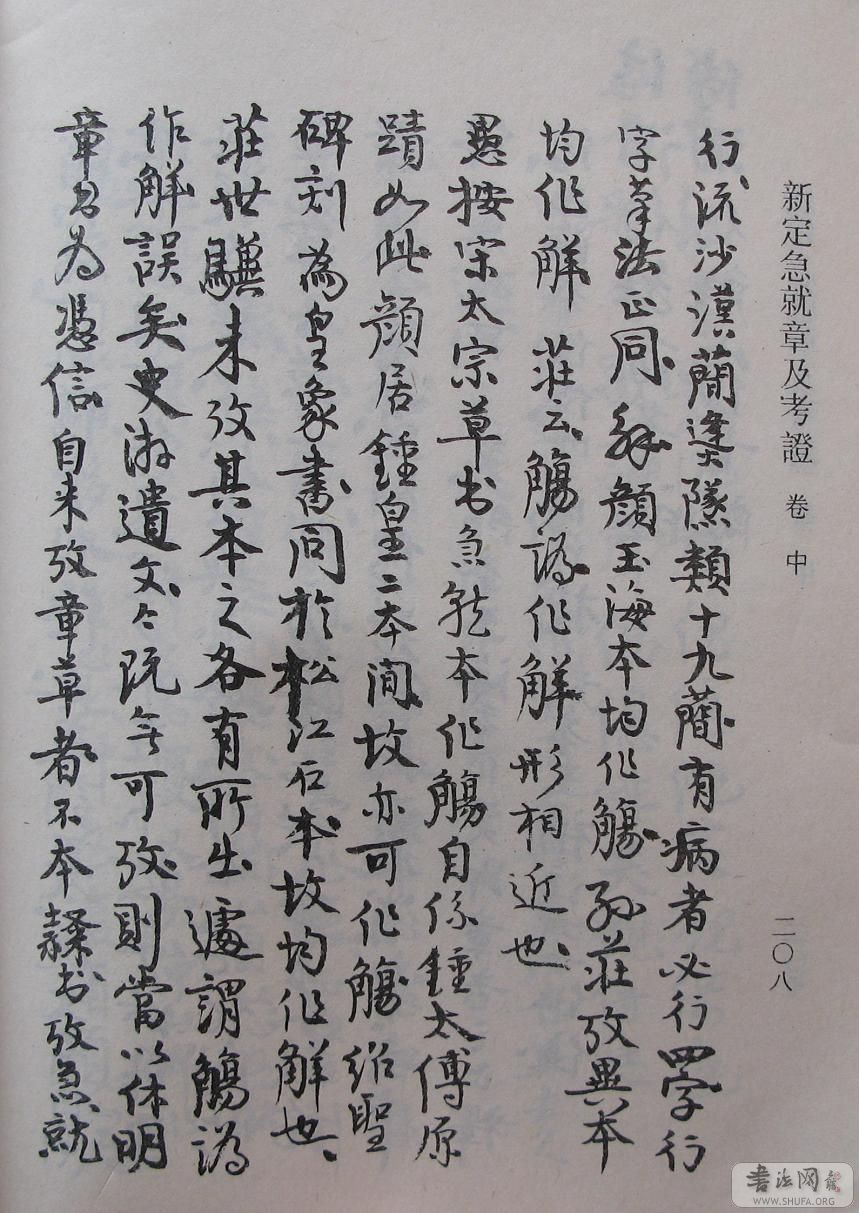 新定急就章及考證 卷中
二〇八
行流沙漢蕳逢隧類十九蕳有病者必行四字行
字草法正同 解顏玉海本均作觴 孫莊攷異本
均作解 莊云觴譌作解形相近也
愚按宋太宗草书急就本作觴自係鍾太傅原
蹟如此顏居鍾皇二本閒故亦可作觴紹聖
碑刻為皇象書同於松江石本故均作解也
莊世驥未攷其本之各有所出遽謂觴譌
作解誤矣史游遺文文既無可攷則當以休明
章书為憑信自来攷章草者不本隸书攷急就
書法网
WWW.SHUFA.ORG